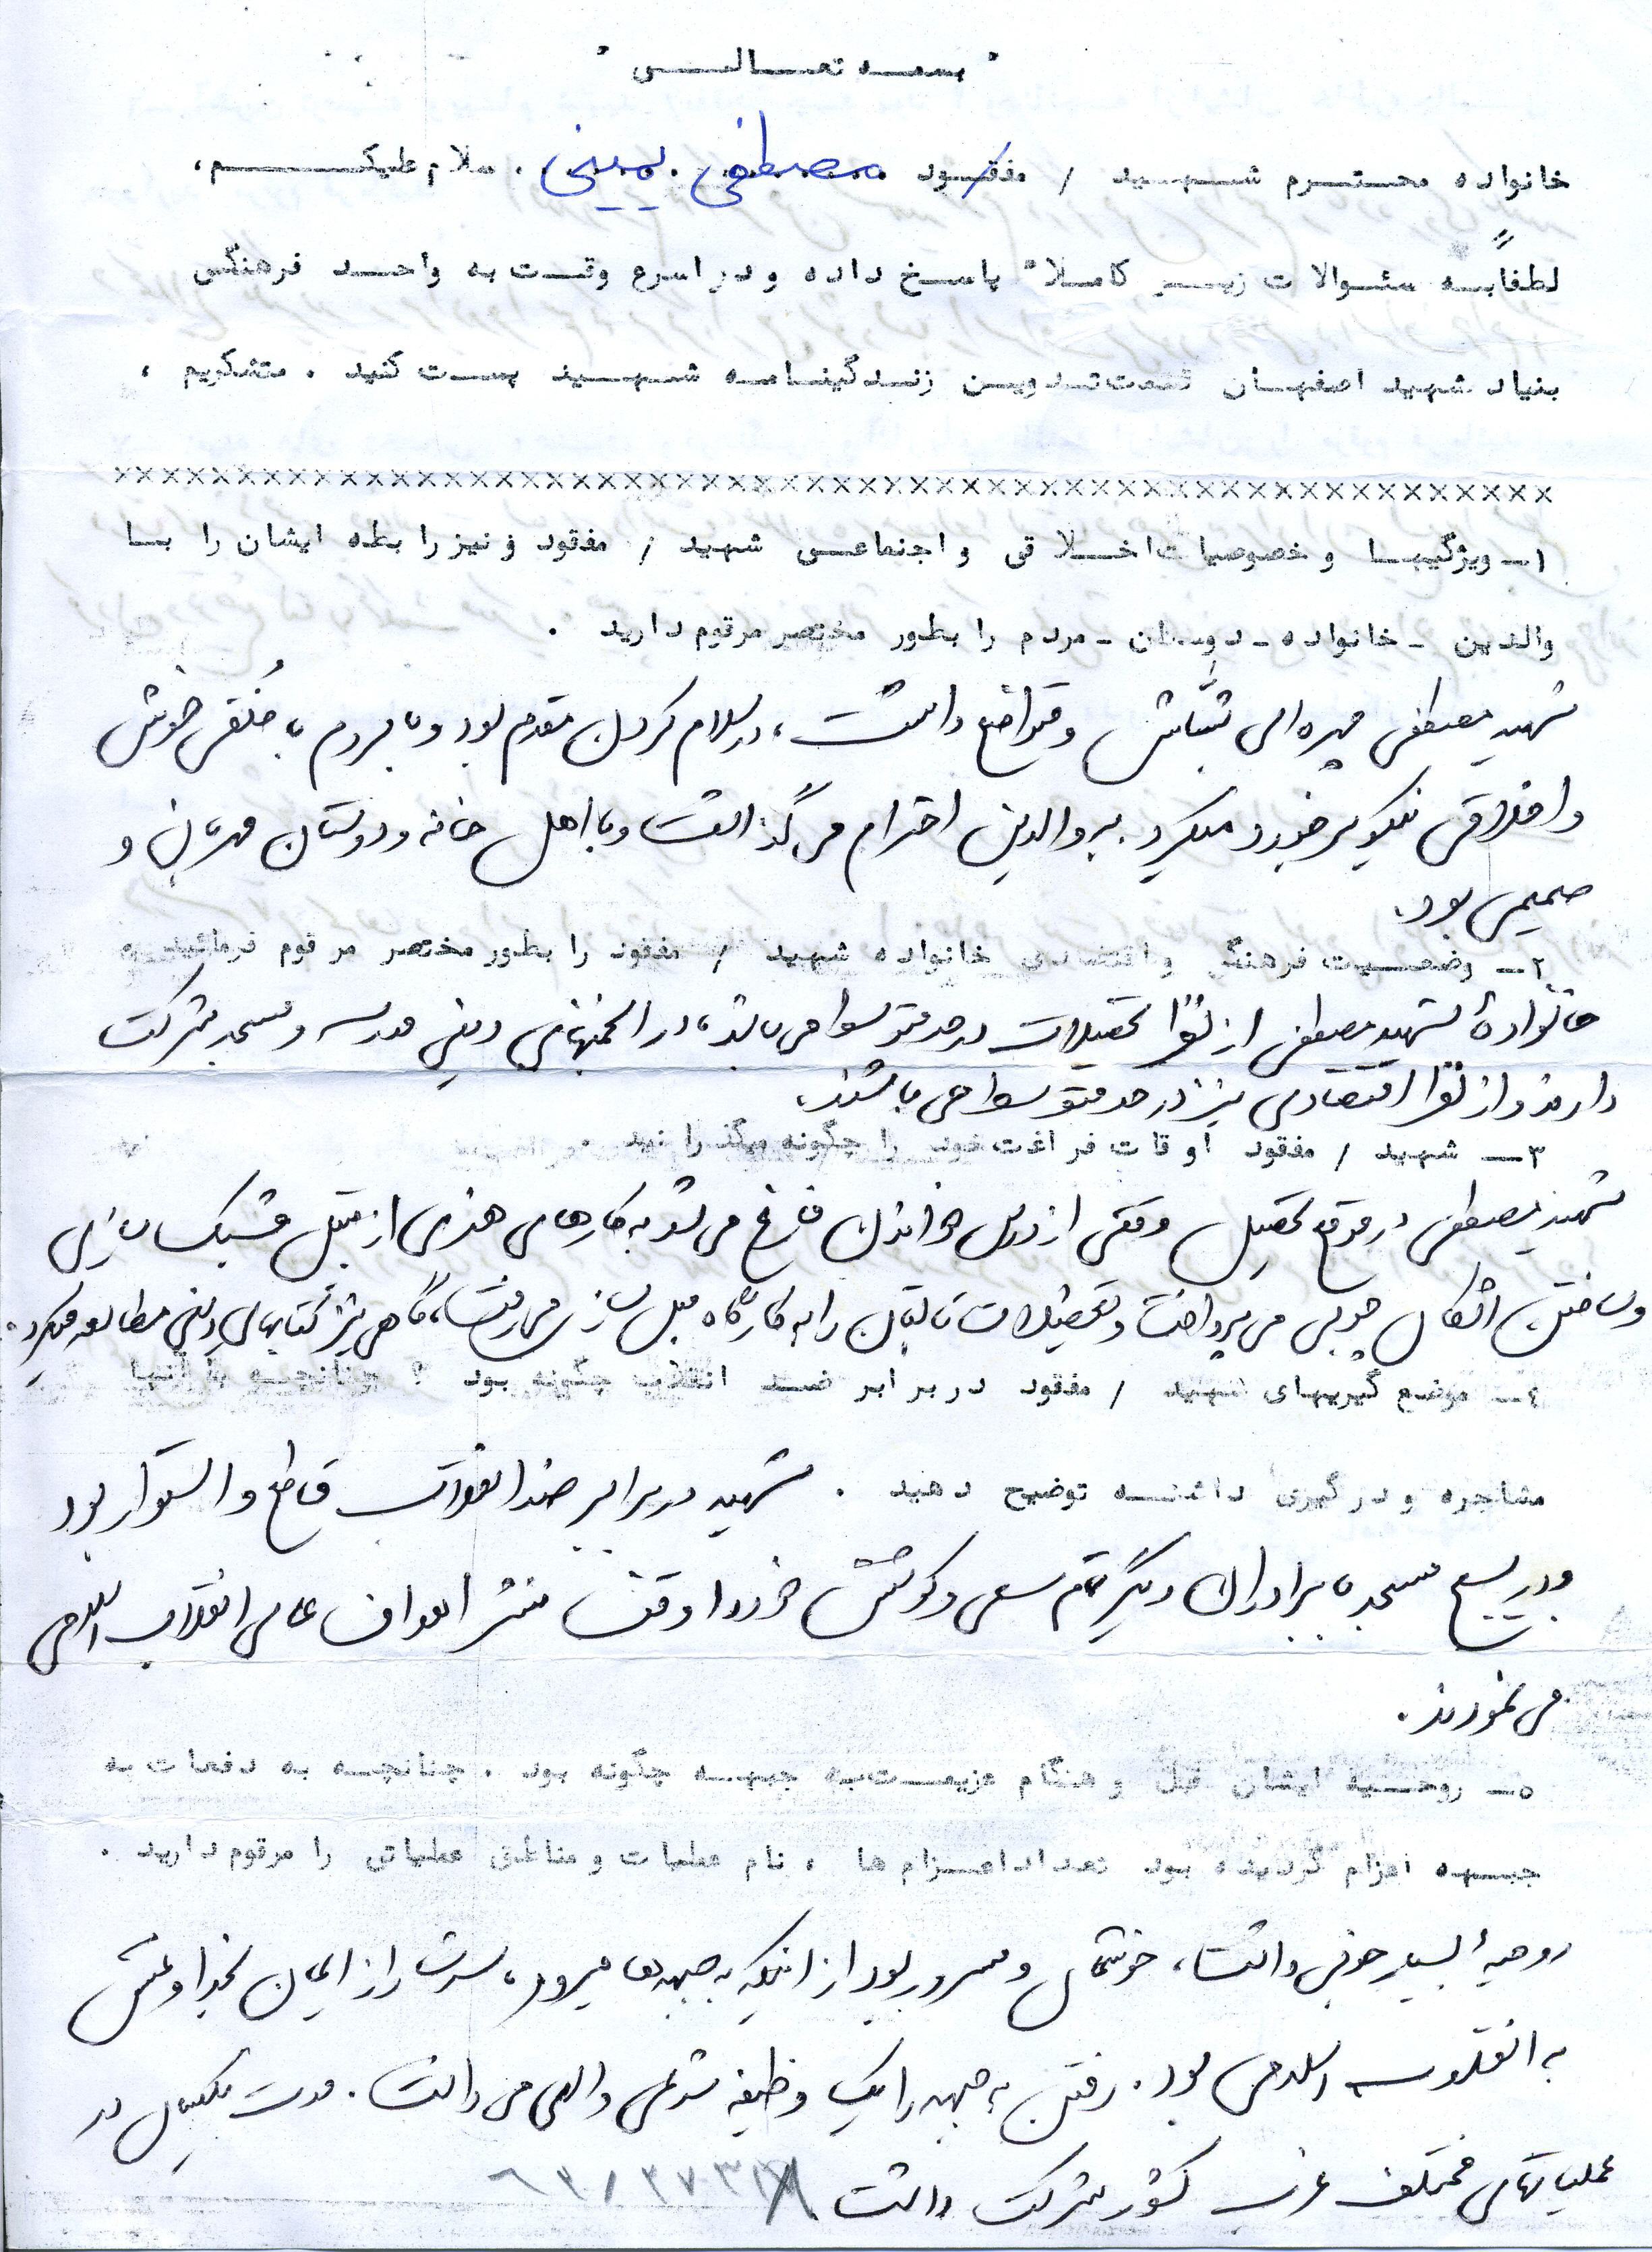 " بسمه تعالی "
خانواده محترم شهید / مفقود مصطفی یمینی . سلام علیکم ،
لطفاً به سئوالات زیر کاملا" پاسخ داده و در اسرع وقت به واحد فرهنگی
بنیاد شهید اصفهان قسمت تدوین زندگینامه شهید پست کنید . متشکریم ،
××××××××××××××××××××××××××××××××××××××××××××××××××××××××
۱- ویژگیها و خصوصیات اخلاقی و اجتماعی شهید / مفقود و نیز رابطه ایشان را با
والدین - خانواده - دوستان - مردم را بطور مختصر مرقوم دارید .
شهید مصطفی چهره ای بشّاش و متواضع داشت ، در سلام کردن مقدم بود و با مردم با خُلقی خوش
و اخلاقی نیکو برخورد میکرد . به والدین احترام می گذاشت و با اهل خانه و دوستان مهربان و
صمیمی بود.
۲- وضعیت فرهنگی و اقتصادی خانواده شهید / مفقود را بطور مختصر مرقوم فرمائید .
خانوادهٔ شهید مصطفی از نظر تحصیلات در حد متوسط می باشد ، در انجمنهای دینی مدرسه و مسجد شرکت
دارند و از نظر اقتصادی نیز در حد متوسط می باشند.
۳- شهید / مفقود اوقات فراغت خود را چگونه میگذرانید .
شهید مصطفی در موقع تحصیل وقتی از درس خواندن فارغ می شد به کارهای هنری از قبیل مشبک سازی
و ساختن اشکال چوبی می پرداخت و تعطیلات تابستان را به کارگاه مبل سازی می رفت ، گاهی نیز کتابهای دینی مطالعه میکرد.
۴- موضع گیریهای شهید / مفقود در برابر ضد انقلاب چگونه بود ؟ چنانچه با آنها
مشاجره و درگیری داشته توضیح دهید . شهید در برابر ضد انقلاب قاطع و استوار بود
و در بسیج مسجد با برادران دیگر تمام سعی و کوشش خود را وقف نشر اهداف عالی انقلاب اسلامی
می نمودند .
۵- روحیه ایشان قبل و هنگام عزیمت به جبهه چگونه بود . چنانچه به دفعات به
جبهه اعزام گردیده بود تعداد اعزام ها ، نام عملیات و مناطق عملیاتی را مرقوم دارید .
روحیهٔ بسیار خوبی داشت ، خوشحال و مسرور بود از اینکه به جبهه ها میرود ، سرشار از ایمان بخدا و عشق
به انقلاب اسلامی بود . رفتن به جبهه را یک وظیفه شرعی و الهی می دانست . مدت یکسال در
عملیاتهای مختلف غرب کشور شرکت داشت